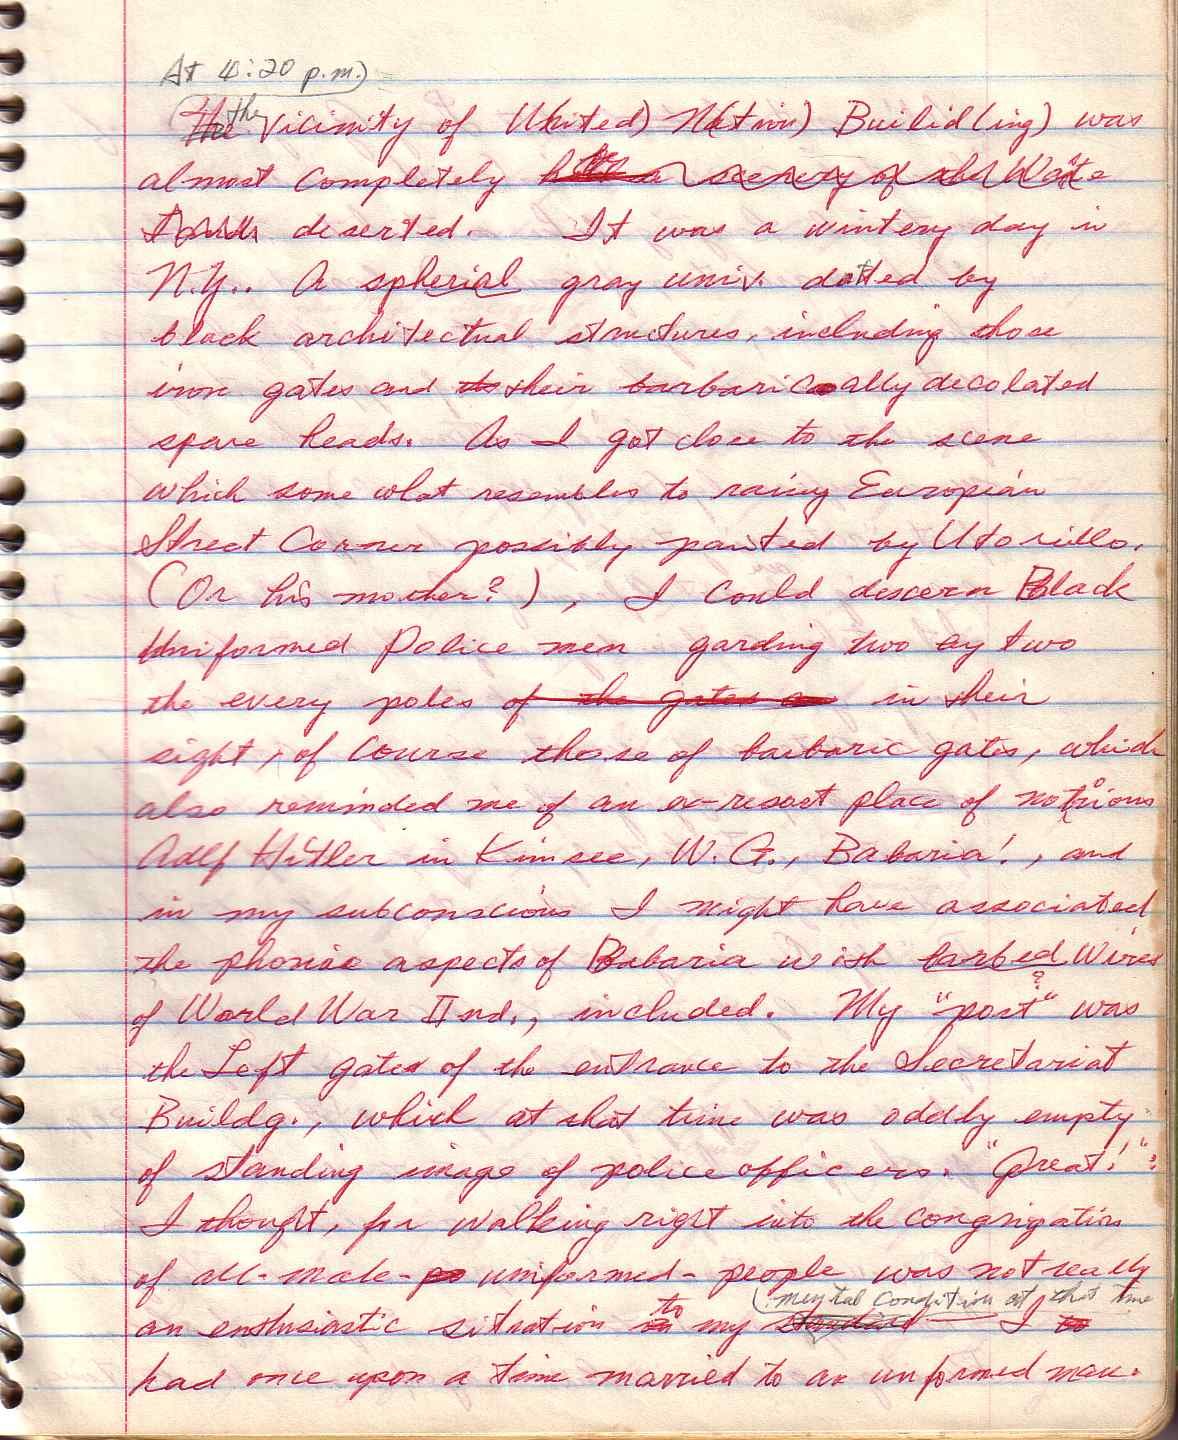 At 4:20 p.m.)
The the Vicinity of U(nited) N(ation) Builid(ing) was
almost completely scenery of the Waste
deserted. It was a wintery day in
N.Y.. A spherial gray univ. dotted by
black architectual structures, including those
iron gates and their barbarically decolated
spare heads. As I got close to the scene
which some what resembles to rainy European
Street Corner possibly painted by Utorillo.
(Or his mother?), I could discern Black
Uniformed Police men garding two by two
the every poles of the gates in their
sight, of course those of barbaric gates, which
also reminded me of an ex-resort place of notorious
Adlf Hitler in Kimsee, W.G., Babaria!, and
in my subconscious I might have associated
the phonic aspects of Babaria with barbed Wires
of World War IInd., included. My "post"? was
the Left gate of the entrance to the Secretariat
Buildg., which at that time was oddly empty
of standing image of police officers. "Great!"
I thought, for walking right into the congrigation
of all-male- uniformed- people was not really
mental condition at that time
an enthsiastic sitration to my I
had once upon a time married to an unformed man.